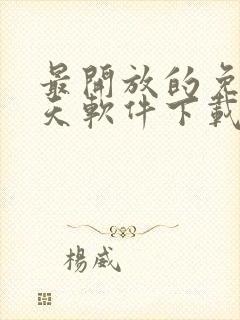 最開放的免
天軟件下載
楊威